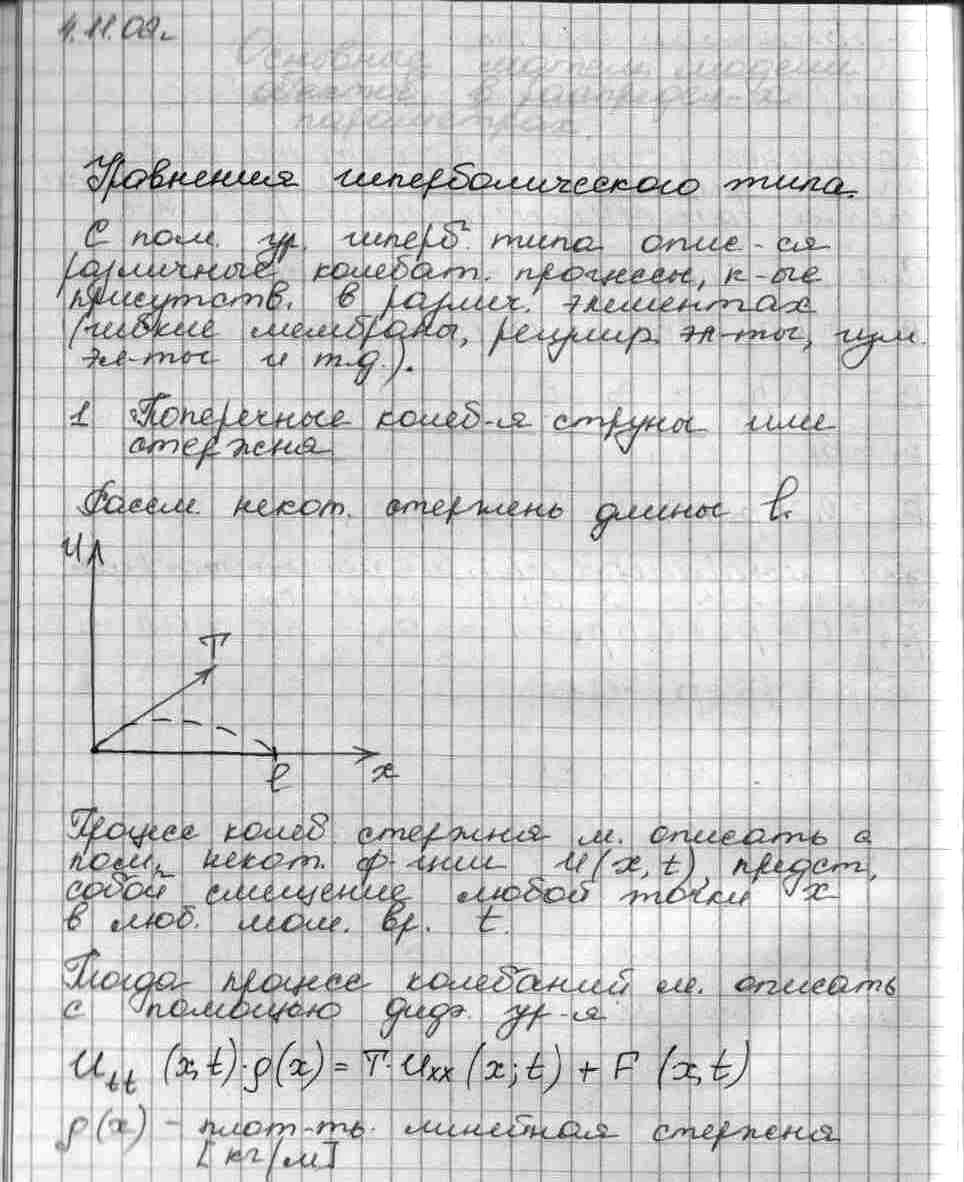 4.11.09г.
Основные матем. модели
объектов с распредел-и
параметрах.
Уравнения гиперболического типа.
С пом. ур. гиперб. типа опис-ся
различные колебат. процессы, к-ые
присутств. в различ. элементах
(гибкие мембраны, регулир. эл-ты, изм.
эл-ты и т.д.).
1 Поперечные колеб-я струны или
стержня
Рассм. некот. стержень длины l.
U
T
l x
Процесс колеб стержня м. описать с
пом. некот. ф-ции U(x,t), предст.
собой смещение любой точки x
в люб. мом. вр. t.
Тогда процесс колебаний м. описать
с помощью диф. ур-я
Utt (x,t)·ρ(x) = T·Uxx (x;t) + F (x,t)
ρ(x) - плот-ть линейная стержня
[кг/м]